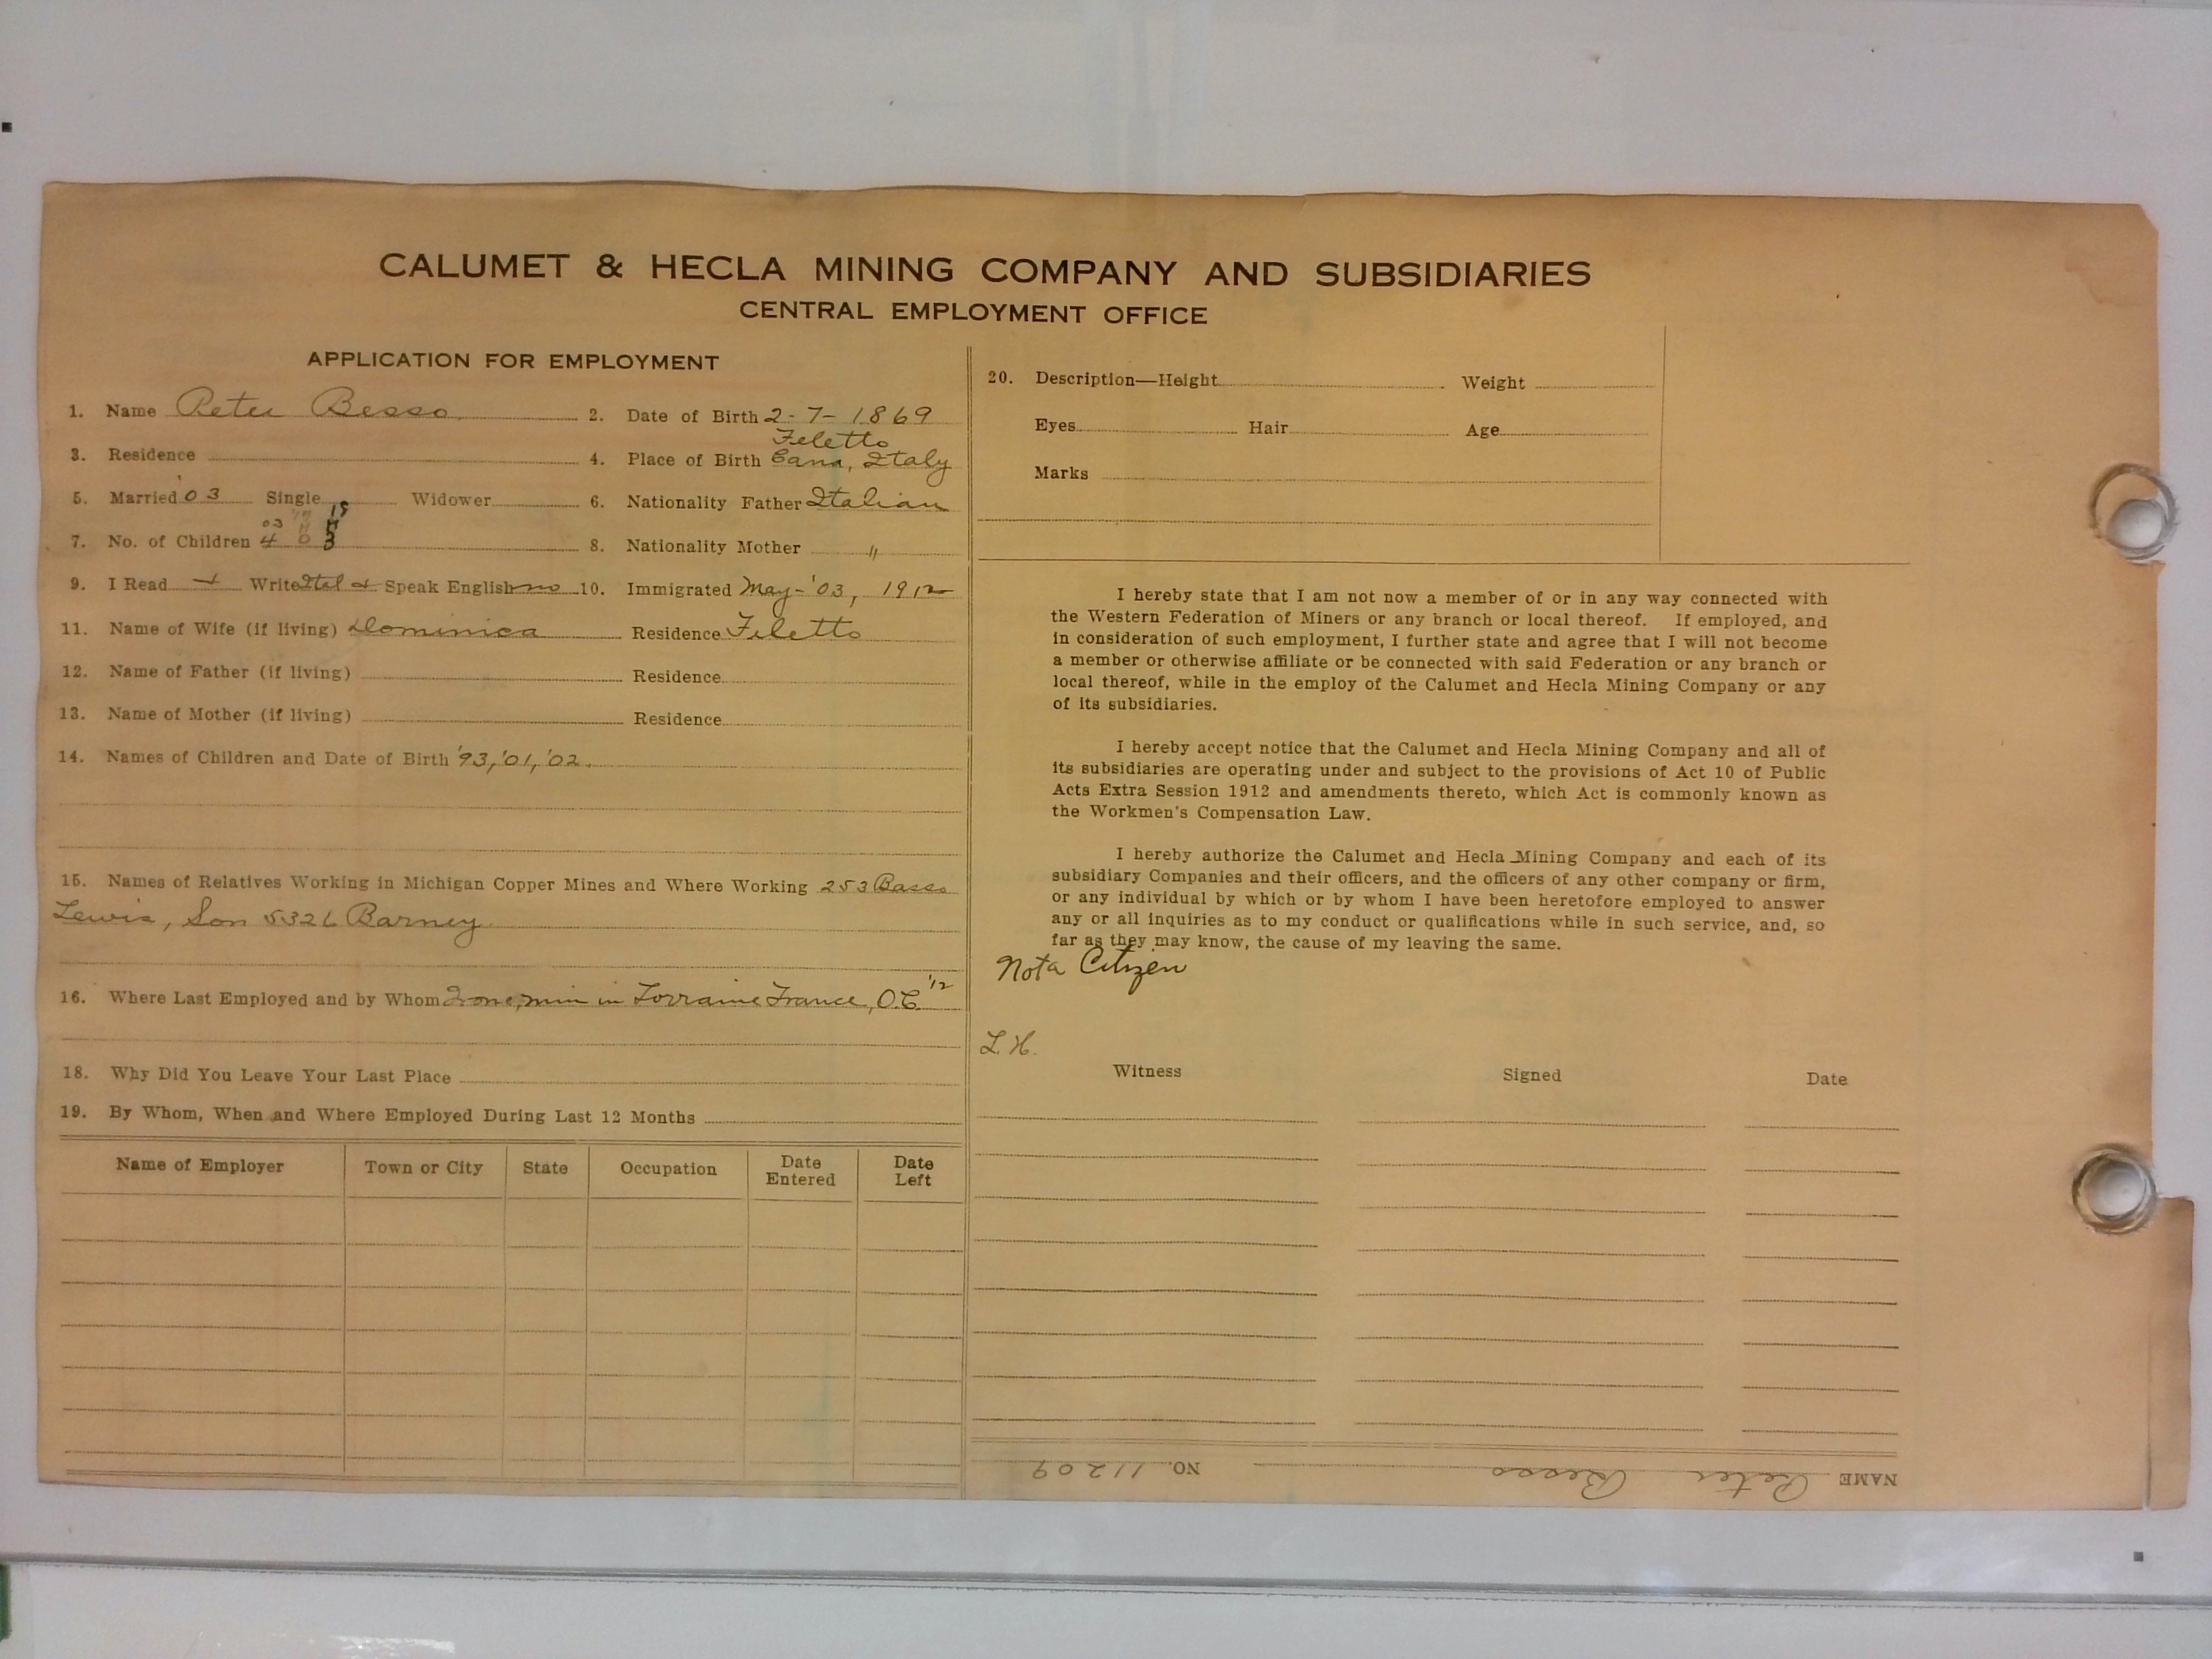 CALUMET & HECLA MINING COMPANY AND SUBSIDIARIES
CENTRAL EMPLOYMENT OFFICE
APPLICATION FOR EMPLOYMENT
1. Name Peter Besso 2. Date of Birth 2-7-1869
3. Residence 4. Place of Birth Feletto Cana, Italy
5. Married '03 Single Widower 6. Nationality Father Italian
03 15
7. No. of Children 4 0 3 8. Nationality Mother "
9. I Read + Write Ital + Speak English no 10. Immigrated May-'03, 1912
11. Name of Wife (if living) Dominica Residence Feletto
12. Name of Father (if living) Residence
13. Name of Mother (if living) Residence
14. Names of Children and Date of Birth '93, '01, '02.
15. Names of Relatives Working in Michigan Copper Mines and Where Working 253 Basso
Lewis, Son 5326 Barney
16. Where Last Employed and by Whom Iron min in Lorraine France, O.C. '12
18. Why Did You Leave Your Last Place
19. By Whom, When and Where Employed During Last 12 Months
Name of Employer Town or City State Occupation Date Entered Date Left
20. Description—Height Weight
Eyes Hair Age
Marks
I hereby state that I am not now a member of or in any way connected with
the Western Federation of Miners or any branch or local thereof. If employed, and
in consideration of such employment, I further state and agree that I will not become
a member or otherwise affiliate or be connected with said Federation or any branch or
local thereof, while in the employ of the Calumet and Hecla Mining Company or any
of its subsidiaries.
I hereby accept notice that the Calumet and Hecla Mining Company and all of
its subsidiaries are operating under and subject to the provisions of Act 10 of Public
Acts Extra Session 1912 and amendments thereto, which Act is commonly known as
the Workmen's Compensation Law.
I hereby authorize the Calumet and Hecla Mining Company and each of its
subsidiary Companies and their officers, and the officers of any other company or firm,
or any individual by which or by whom I have been heretofore employed to answer
any or all inquiries as to my conduct or qualifications while in such service, and, so
far as they may know, the cause of my leaving the same.
Not a Citizen
L.H.
Witness Signed Date
NAME Peter Besso NO. 11209